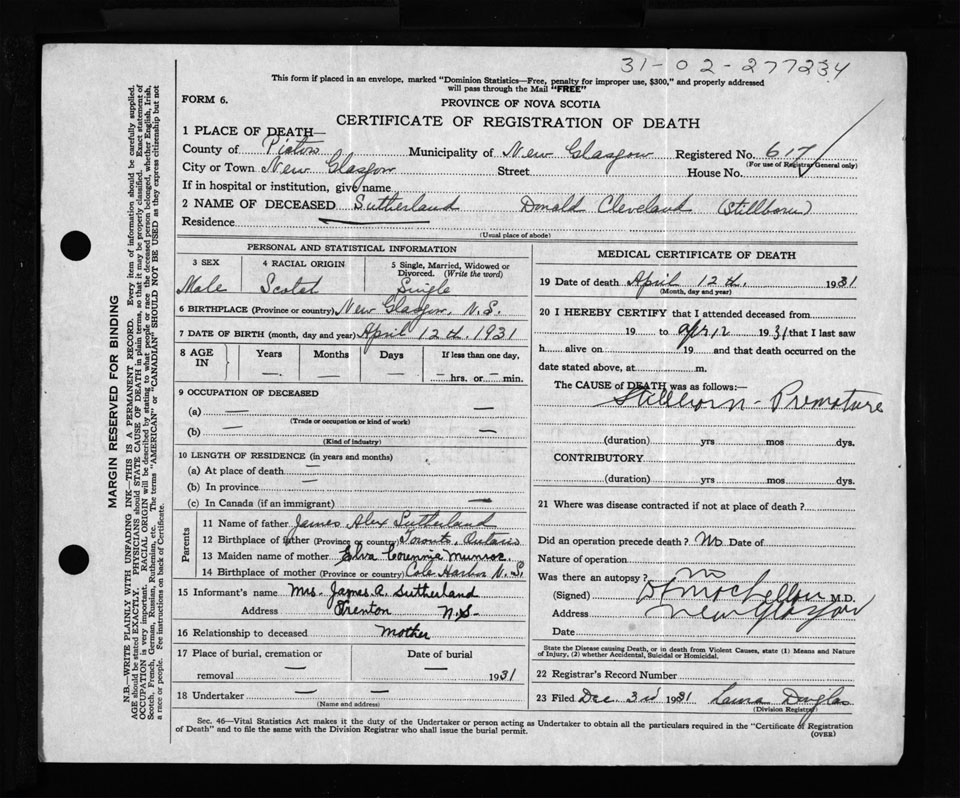 31-02-277234
This form if placed in an envelope, marked "Dominion Statistics—Free, penalty for improper use, $300," and properly addressed
will pass through the Mail "FREE"
FORM 6.
PROVINCE OF NOVA SCOTIA
CERTIFICATE OF REGISTRATION OF DEATH
1 PLACE OF DEATH—
County of Pictou Municipality of New Glasgow Registered No. 617
(For use of Registrar General only)
City or Town New Glasgow Street House No.
If in hospital or institution, give name
2 NAME OF DECEASED Sutherland Donald Cleveland (Stillborn)
Residence
(Usual place of abode)
PERSONAL AND STATISTICAL INFORMATION
3 SEX 4 RACIAL ORIGIN 5 Single, Married, Widowed or
Divorced. (Write the word)
Male Scotch Single
6 BIRTHPLACE (Province or country) New Glasgow, N.S.
7 DATE OF BIRTH (month, day and year) April 12th, 1931
8 AGE IN Years Months Days If less than one day,
— — — — hrs. or — min.
9 OCCUPATION OF DECEASED
(a) — —
(Trade or occupation or kind of work)
(b) — —
(Kind of industry)
10 LENGTH OF RESIDENCE (in years and months)
(a) At place of death —
(b) In province —
(c) In Canada (if an immigrant) —
Parents
11 Name of father James Alex Sutherland
12 Birthplace of father (Province or country) Toronto, Ontario
13 Maiden name of mother Elva Munroe
14 Birthplace of mother (Province or country) Cole Harbor N.S.
15 Informant's name Mrs. James A. Sutherland
Address Trenton N.S.
16 Relationship to deceased mother
17 Place of burial, cremation or Date of burial
removal — — 1931
18 Undertaker — —
(Name and address)
MEDICAL CERTIFICATE OF DEATH
19 Date of death April 12th, 1931
(Month, day and year)
20 I HEREBY CERTIFY that I attended deceased from
19 to apr 12 1931 that I last saw
h alive on 19 and that death occurred on the
date stated above, at m.
The CAUSE of DEATH was as follows:—
Stillborn - Premature
(duration) yrs mos dys.
CONTRIBUTORY
(duration) yrs mos dys.
21 Where was disease contracted if not at place of death?
Did an operation precede death? No Date of
Nature of operation
Was there an autopsy? no
(Signed) M.D.
Address New Glasgow
Date
State the Disease causing Death, or in death from Violent Causes, state (1) Means and Nature
of Injury, (2) whether Accidental, Suicidal or Homicidal.
22 Registrar's Record Number
23 Filed Dec 3rd 1931 Laura Douglas
(Division Registrar)
Sec. 46—Vital Statistics Act makes it the duty of the Undertaker or person acting as Undertaker to obtain all the particulars required in the "Certificate of Registration
of Death" and to file the same with the Division Registrar who shall issue the burial permit.
(OVER)
MARGIN RESERVED FOR BINDING
N.B.—WRITE PLAINLY WITH UNFADING INK—THIS IS A PERMANENT RECORD. Every item of information should be carefully supplied.
AGE should be stated EXACTLY. PHYSICIANS should STATE CAUSE OF DEATH in plain terms, so that it may be properly classified. Exact statement of
OCCUPATION is very important. RACIAL ORIGIN will be described by stating to what people or race the deceased person belonged, whether English, Irish,
Scotch, French, German, Russian, Ruthenian, etc. The terms "AMERICAN" or "CANADIAN" SHOULD NOT BE USED as they express citizenship but not
a race or people. See instructions on back of Certificate.